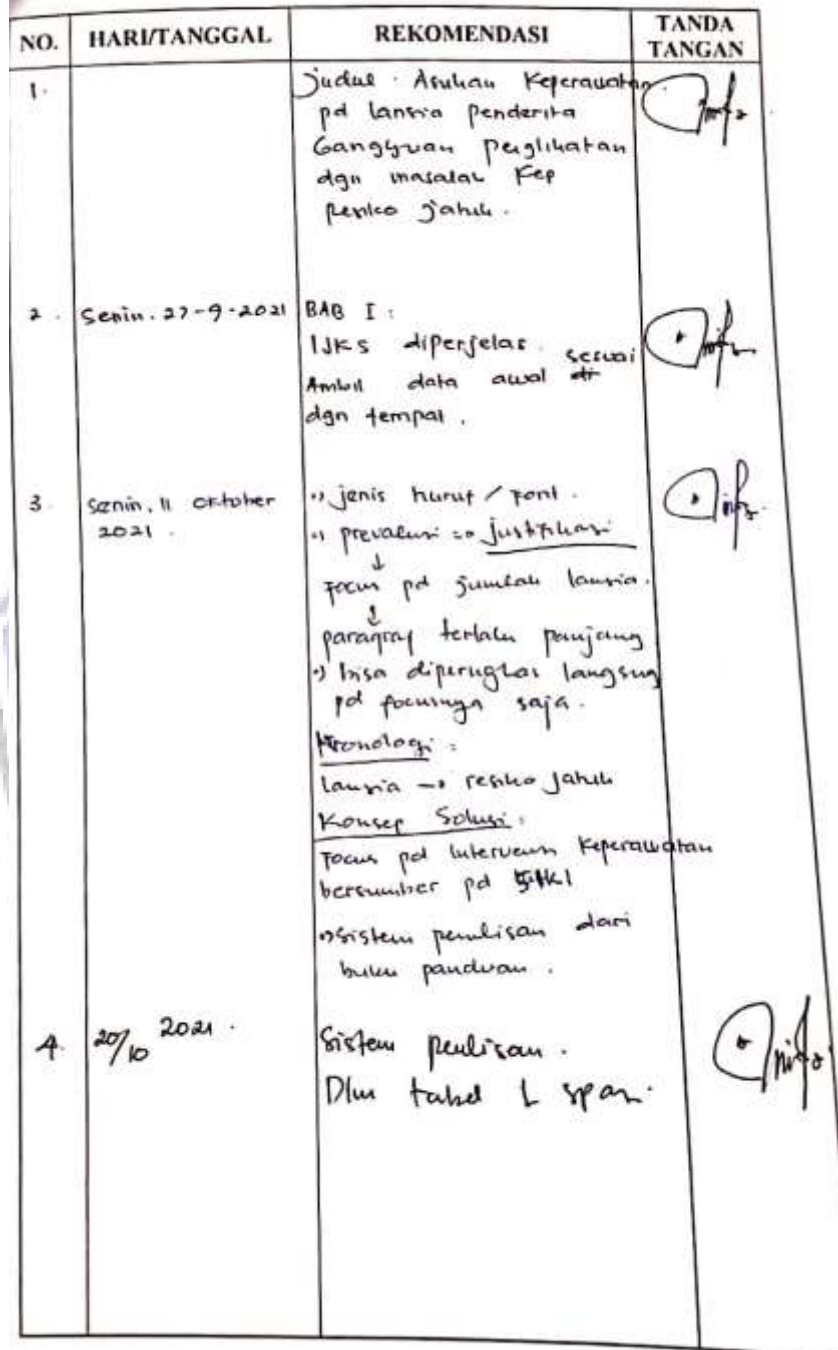 NO. HARI/TANGGAL REKOMENDASI TANDA TANGAN
1. Judul : Asuhan Keperawatan
pd lansia penderita
Gangguan penglihatan
dgn masalah Kep
Resiko jatuh.
2. Senin. 27-9-2021 BAB I :
IJKS diperjelas.
Ambil data awal sesuai
dgn tempat.
3. Senin, 11 Oktober 2021. jenis huruf / Font.
prevalensi => justifikasi
↓
Focus pd jumlah lansia.
↓
paragraf terlalu panjang
bisa diperingkas langsung
pd focusnya saja.
Kronologi :
Lansia → resiko jatuh
Konsep Solusi :
Focus pd Intervensi Keperawatan
bersumber pd
Sistem penulisan dari
buku panduan.
4. 20/10 2021. Sistem penulisan.
Dlm tabel 1 spasi.